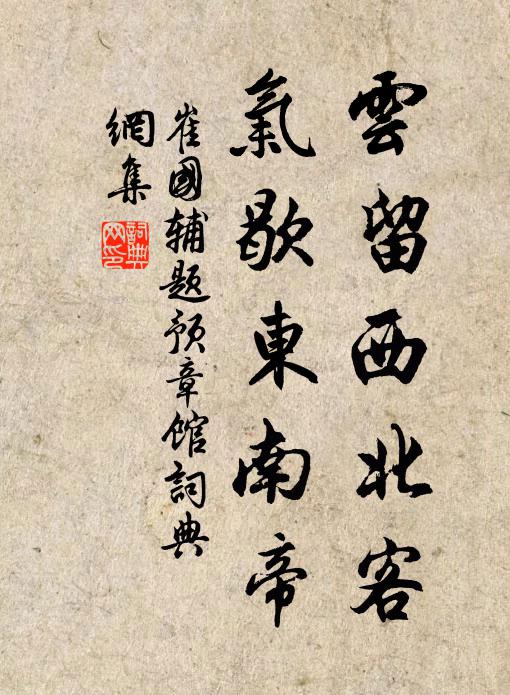 雲留西北客
氣歇東南帝
崔國輔題預章館詞典
網集
詞典網印